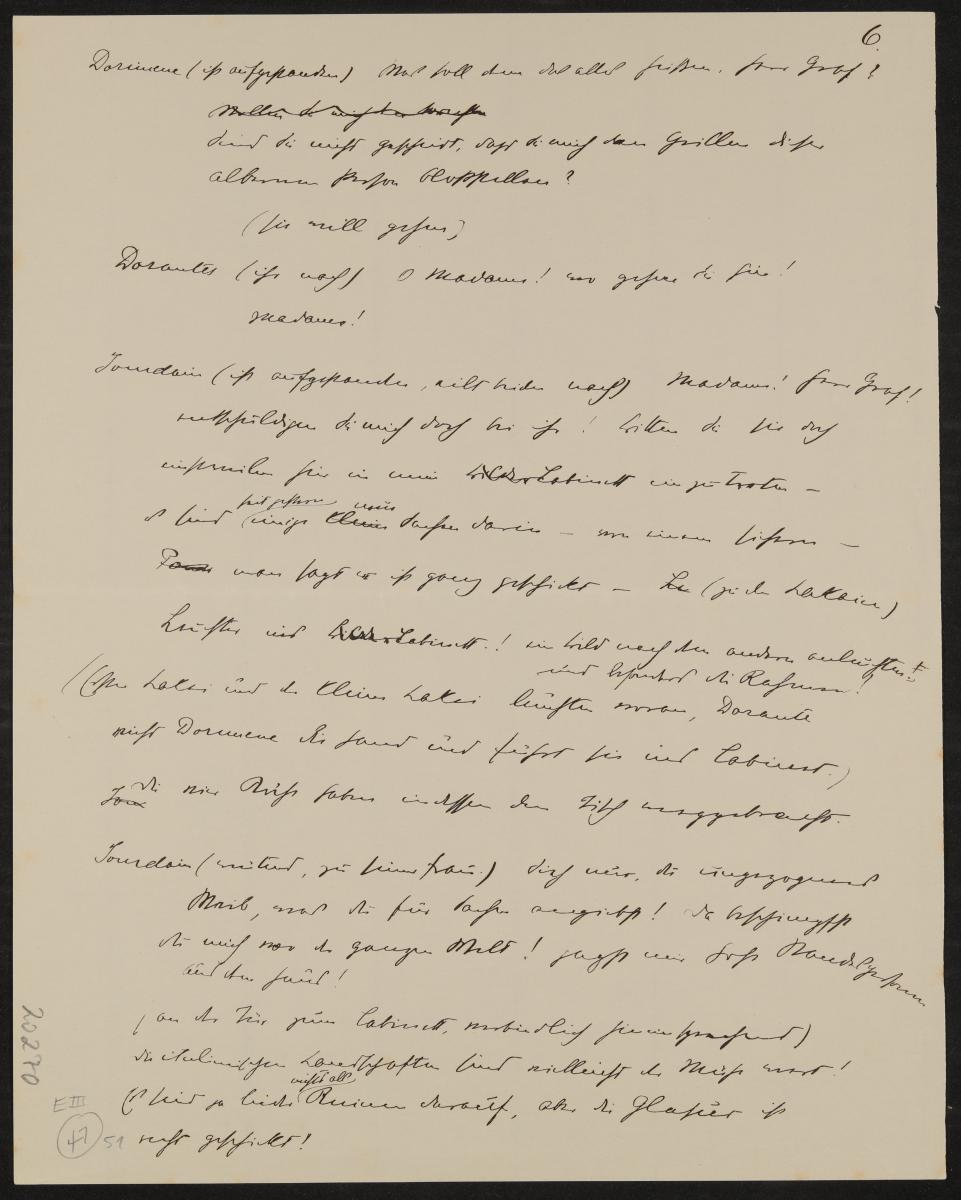 6.
Dorimene (ist aufgestanden) Was soll denn das alles heißen, Herr Graf?
Wollen Sie mich
Sind Sie nicht gescheidt, dass Sie mich den Grillen dieser
albernen Person bloßstellen?
(sie will gehen)
Dorantes (ihr nach) O Madame! wo gehen Sie hin!
Madame!
Jourdain (ist aufgestanden, eilt beiden nach) Madame! Herr Graf!
entschuldigen Sie mich doch bei ihr! bitten Sie sie doch
einstweilen hier in mein Bilder Cabinett einzutreten –
seit gestern neue
es sind einige kleine Sachen darin – von einem sicheren –
man sagt er ist ganz geschickt – (zu den Lakaien)
Leuchter ins Bilder Cabinett! ein Bild nach dem andern anleuchten
und besonders die Rahmen!
((Der Lakai und der kleine Lakai leuchten voran, Dorante
reicht Dorimene die Hand und führt sie ins Cabinett.)
Jour die vier Köche haben indessen den Tisch weggebracht.
Jourdain (wütend, zu seiner Frau.) Sieh nur, du ungezogenes
Weib, was du für Sachen angiebst! Da beschimpfst
du mich vor der ganzen Welt! jagst mir hohe Standespersonen
aus dem Haus!
(an der Tür zum Cabinett, verbindlich hineinsprechend)
die italienischen Landschaften sind vielleicht der Mühe wert!
nichts als
Es sind ja leider Ruinen darauf, aber die Glasur ist
recht geschickt!
20270
E III
47
51